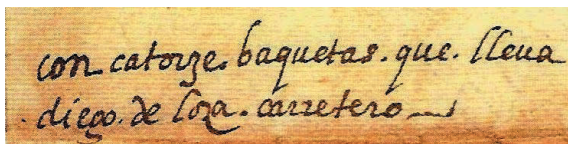 con catorze. baquetas. que. lleua
. diego. de loza. carretero